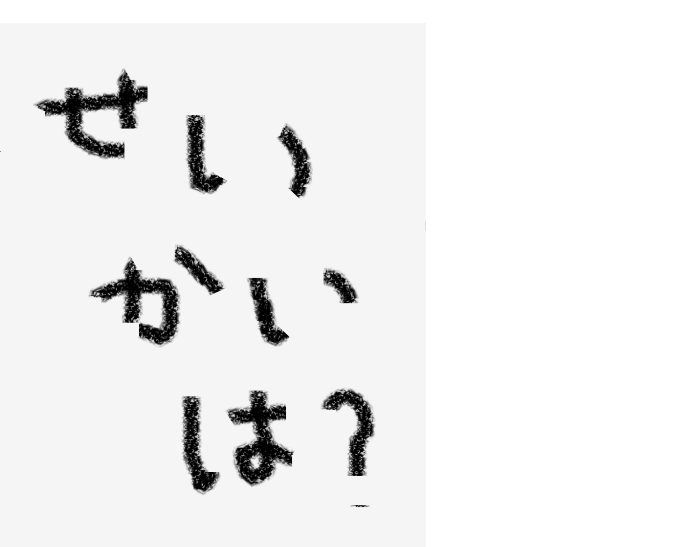 せい
かい
は?